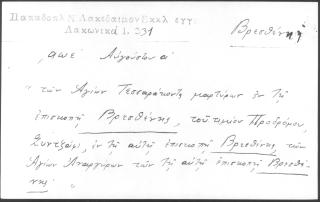 Παπαδοπλ Ν. Λακεδαίμον Εκκλ εγγ.
Λακωνικά 1. 231
Βρεσθένη
,αωε΄ Αὐγούστου α΄
"τῶν Ἁγίων Τεσσαράκοντα μαρτύρων ἐν τῇ
ἐπισκοπῇ Βρεσθένης, τοῦ τιμίου Προδρόμου,
ἐν τῇ αὐτῇ ἐπισκοπῇ Βρεσθένης τῶν
Ἁγίων Ἀναργύρων τῶν τῇ αὐτῇ ἐπισκοπῇ Βρεσθέ
νης"